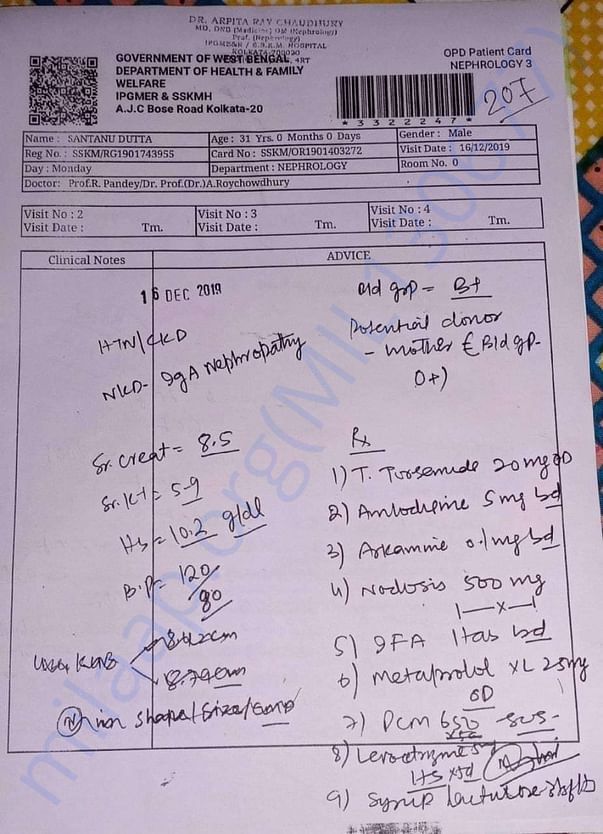 DR. ARPITA RAY CHAUDHURY
MD, DNB (Medicine) DM (Nephrology)
Prof. (Nephrology)
IPGME&R / S.S.K.M. HOSPITAL
KOLKATA-700020
GOVERNMENT OF WEST BENGAL
DEPARTMENT OF HEALTH & FAMILY
WELFARE
IPGMER & SSKMH
A.J.C Bose Road Kolkata-20
OPD Patient Card
NEPHROLOGY 3
*3322247*
207
Name : SANTANU DUTTA Age : 31 Yrs. 0 Months 0 Days Gender : Male
Reg No. : SSKM/RG1901743955 Card No : SSKM/OR1901403272 Visit Date : 16/12/2019
Day : Monday Department : NEPHROLOGY Room No. 0
Doctor: Prof.R. Pandey/Dr. Prof.(Dr.)A.Roychowdhury
Visit No : 2 Visit No : 3 Visit No : 4
Visit Date : Tm. Visit Date : Tm. Visit Date : Tm.
Clinical Notes ADVICE
16 DEC 2019
HTN/CKD
NKD- IgA Nephropathy
Sr. creat = 8.5
Sr. K+ = 5.9
Hb = 10.2 g/dl
B.P = 120/80
USG KUB
8.79cm
(N) in shape/size/
Bld grp = B+
Potential donor
- mother c̄ Bld gp-
O+)
Rx
1) T. Torsemide 20 mg OD
2) Amlodipine 5 mg bd
3) Arkamine 0.1 mg bd
4) Nodosis 500 mg
1—x—1
5) IFA 1 tab bd
6) Metoprolol XL 25mg
OD
7) PCM 650 SOS
x5d
8) Levocetrizine 5
HS x5d
9) Syrup Lactulose
milaap.org(MIL130877)